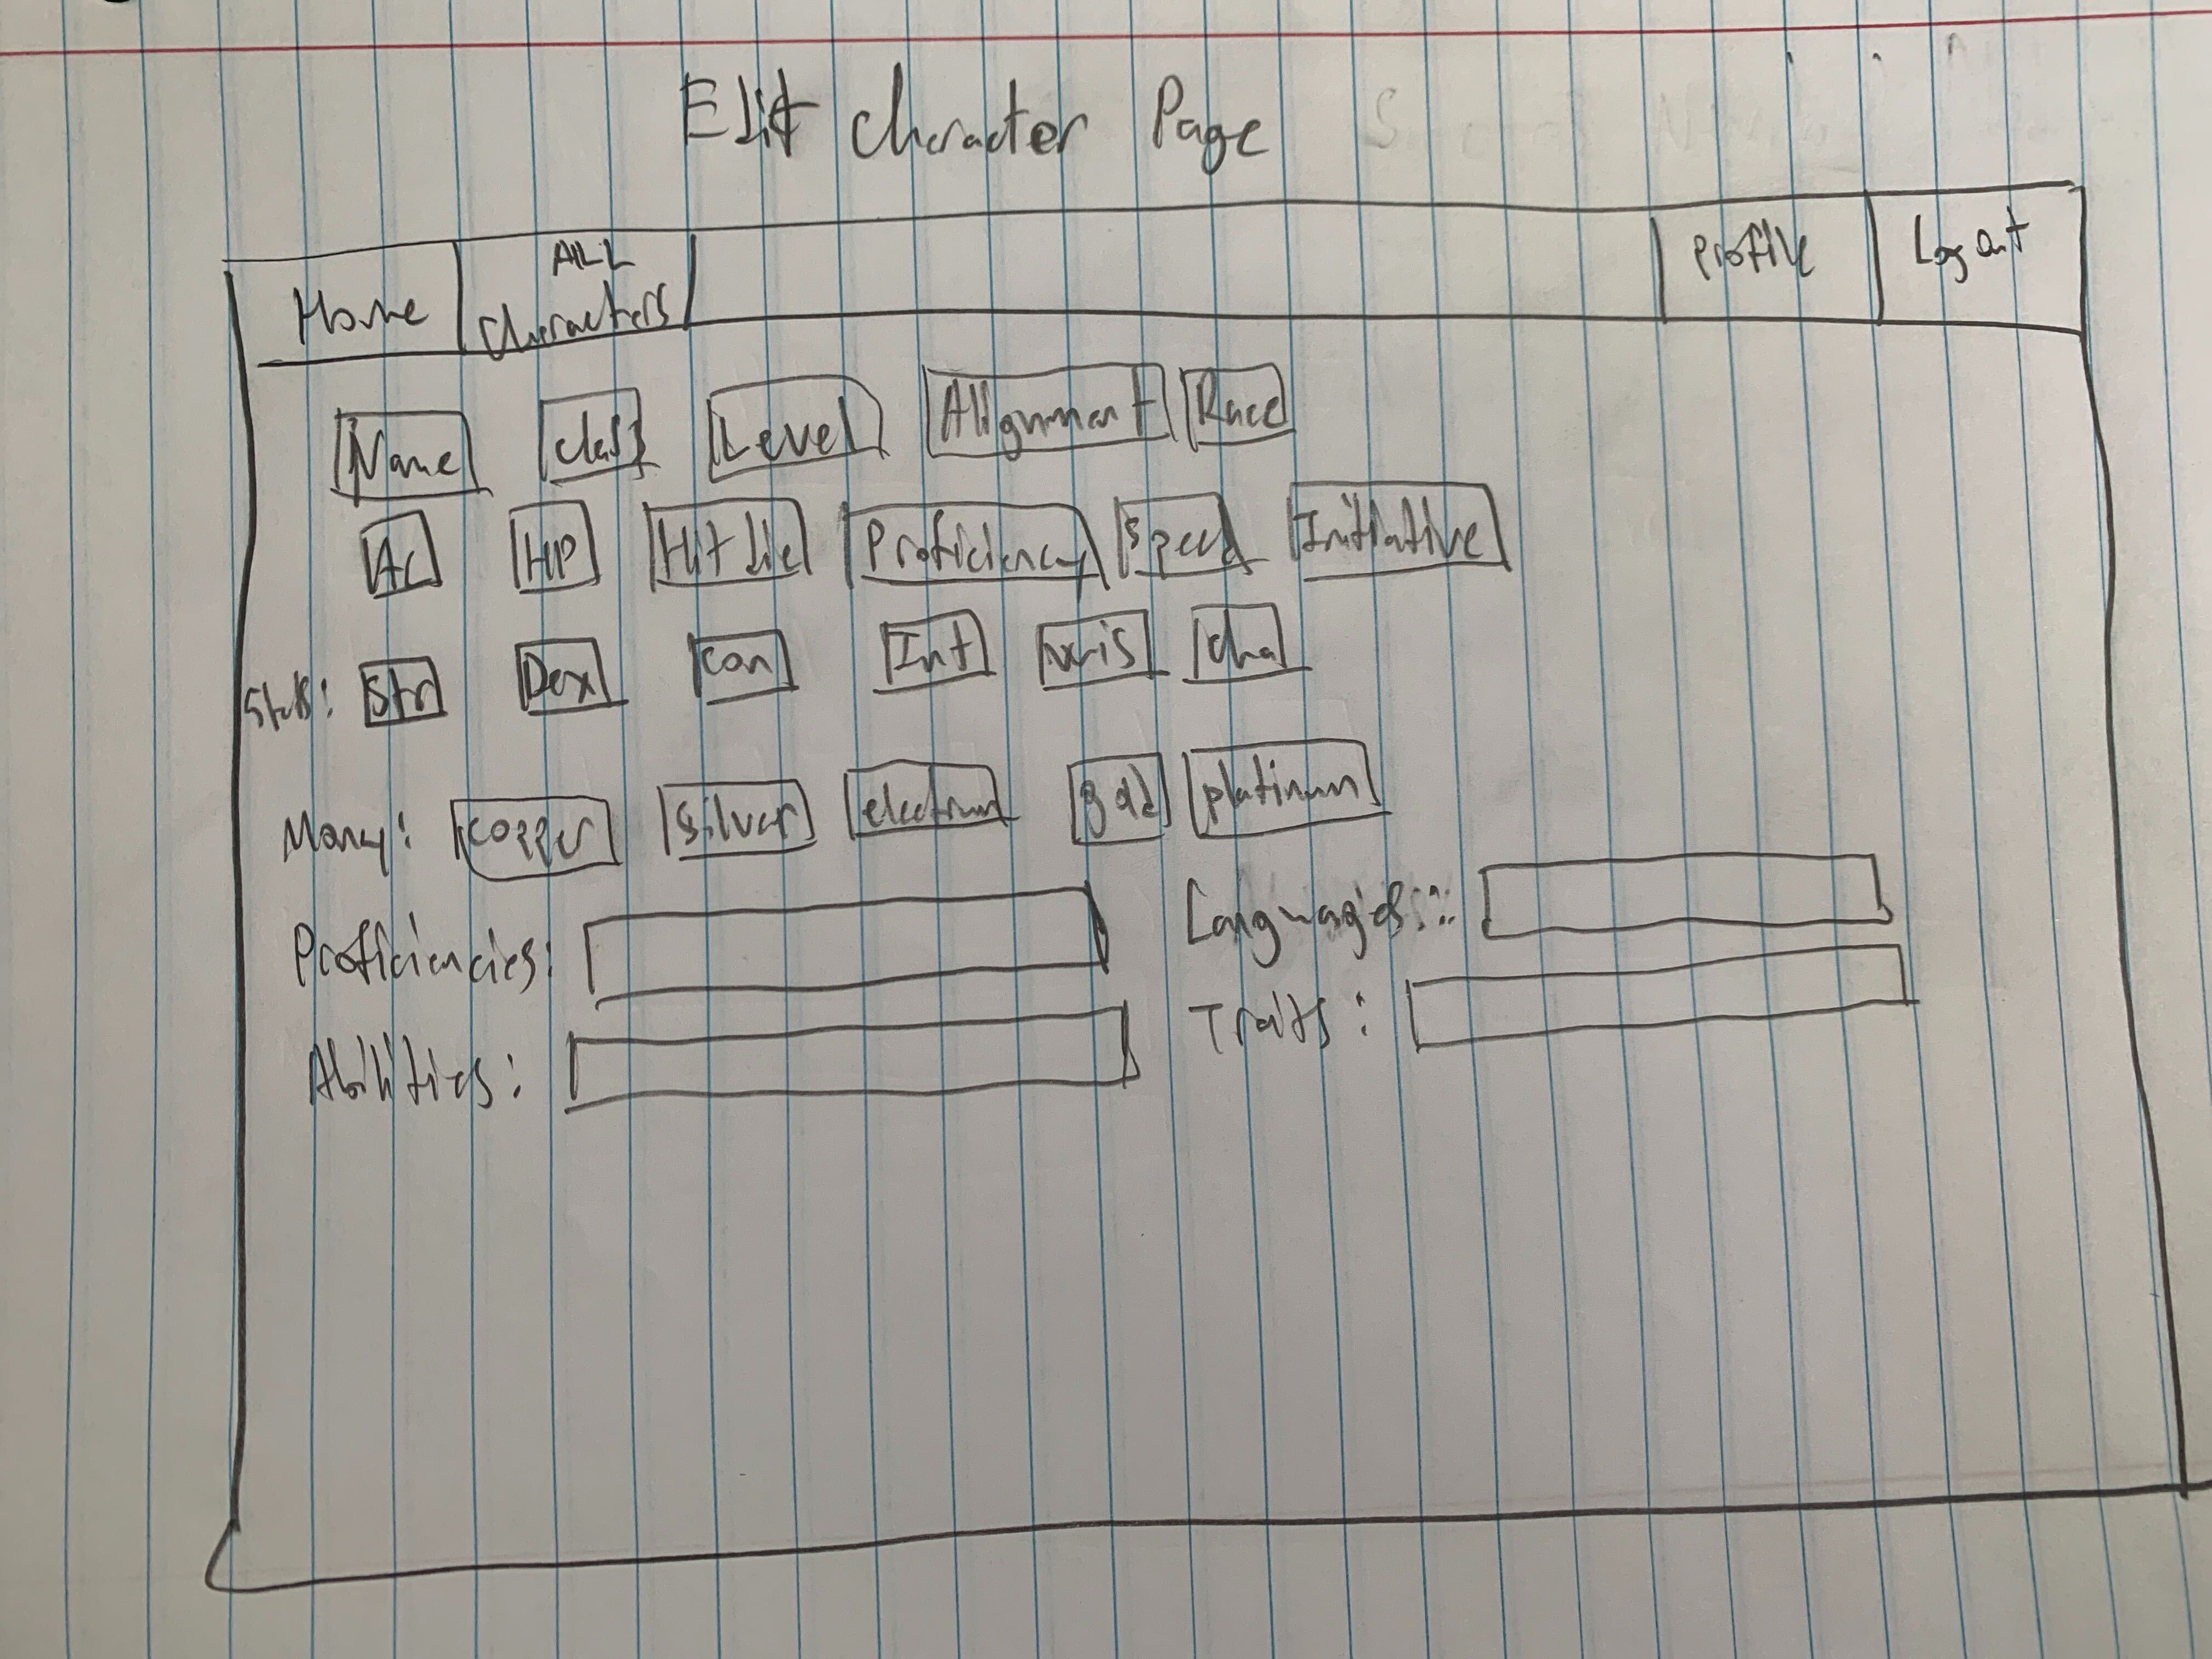 Edit Character Page
Home ALL Characters Profile Logout
Name Class Level Alignment Race
AC HP Hit die Proficiency Speed Initiative
Stats: Str Dex Con Int wis cha
Money: copper silver electrum gold platinum
Proficiencies: Languages:
Abilities: Traits: